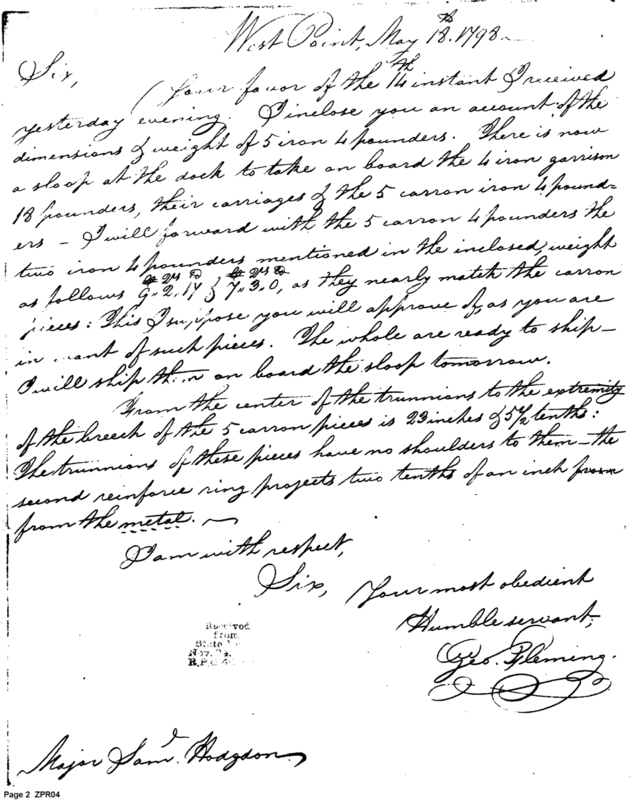 West Point, May 18th. 1798
Sir,
Your favor of the 14th instant I received
yesterday evening. I inclose you an account of the
dimensions & weight of 5 iron 4 pounders. There is now
a sloop at the dock to take on board the 4 iron garrison
18 pounders, their carriages & the 5 carron iron 4 pound=
ers – I will forward with the 5 carron 4 pounders the
two iron 4 pounders mentioned in the inclosed weight
as follows 9.. 2. 17 & 7.. 3. 0, as they nearly match the carron
pieces: This I suppose you will approve of, as you are
in want of such pieces. The whole are ready to ship –
I will ship them on board the sloop tomorrow.
From the center of the trunnions to the extremity
of the breech of the 5 carron pieces is 23 inches & 5 1/2 tenths:
The trunnions of these pieces have no shoulders to them – the
second reinforce ring projects two tenths of an inch from
from the metal. –
I am with respect,
Sir, Your most obedient
Humble servant,
Geo. Fleming.
Received
from
State
Nov. 24.
Major Saml. Hodgdon
Page 2 ZPR04